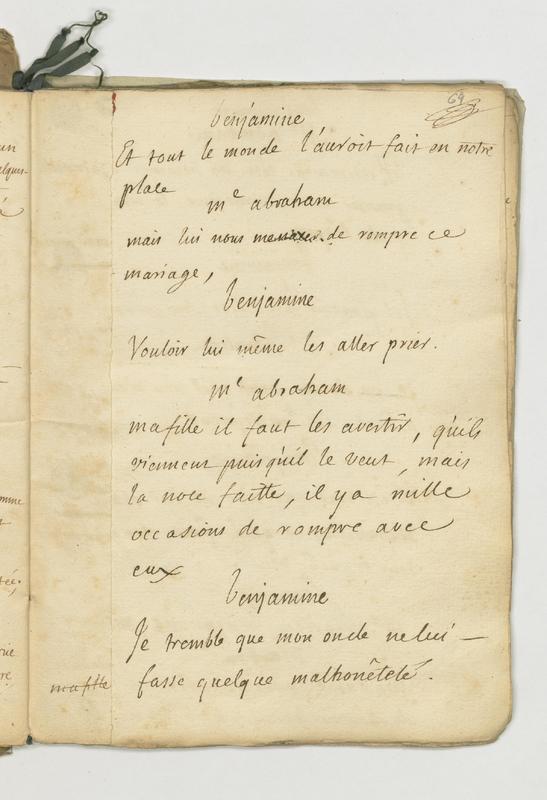 69
benjamine
Et tout le monde l'auroit fait en notre
place
me abraham
mais lui nous de rompre ce
mariage,
benjamine
Vouloir lui même les aller prier.
me abraham
ma fille il faut les avertir, qu'ils
viennent puisqu'il le veut, mais
la noce faitte, il y a mille
occasions de rompre avec
eux
benjamine
Je tremble que mon oncle ne lui —
ma fille
fasse quelque malhonêteté.